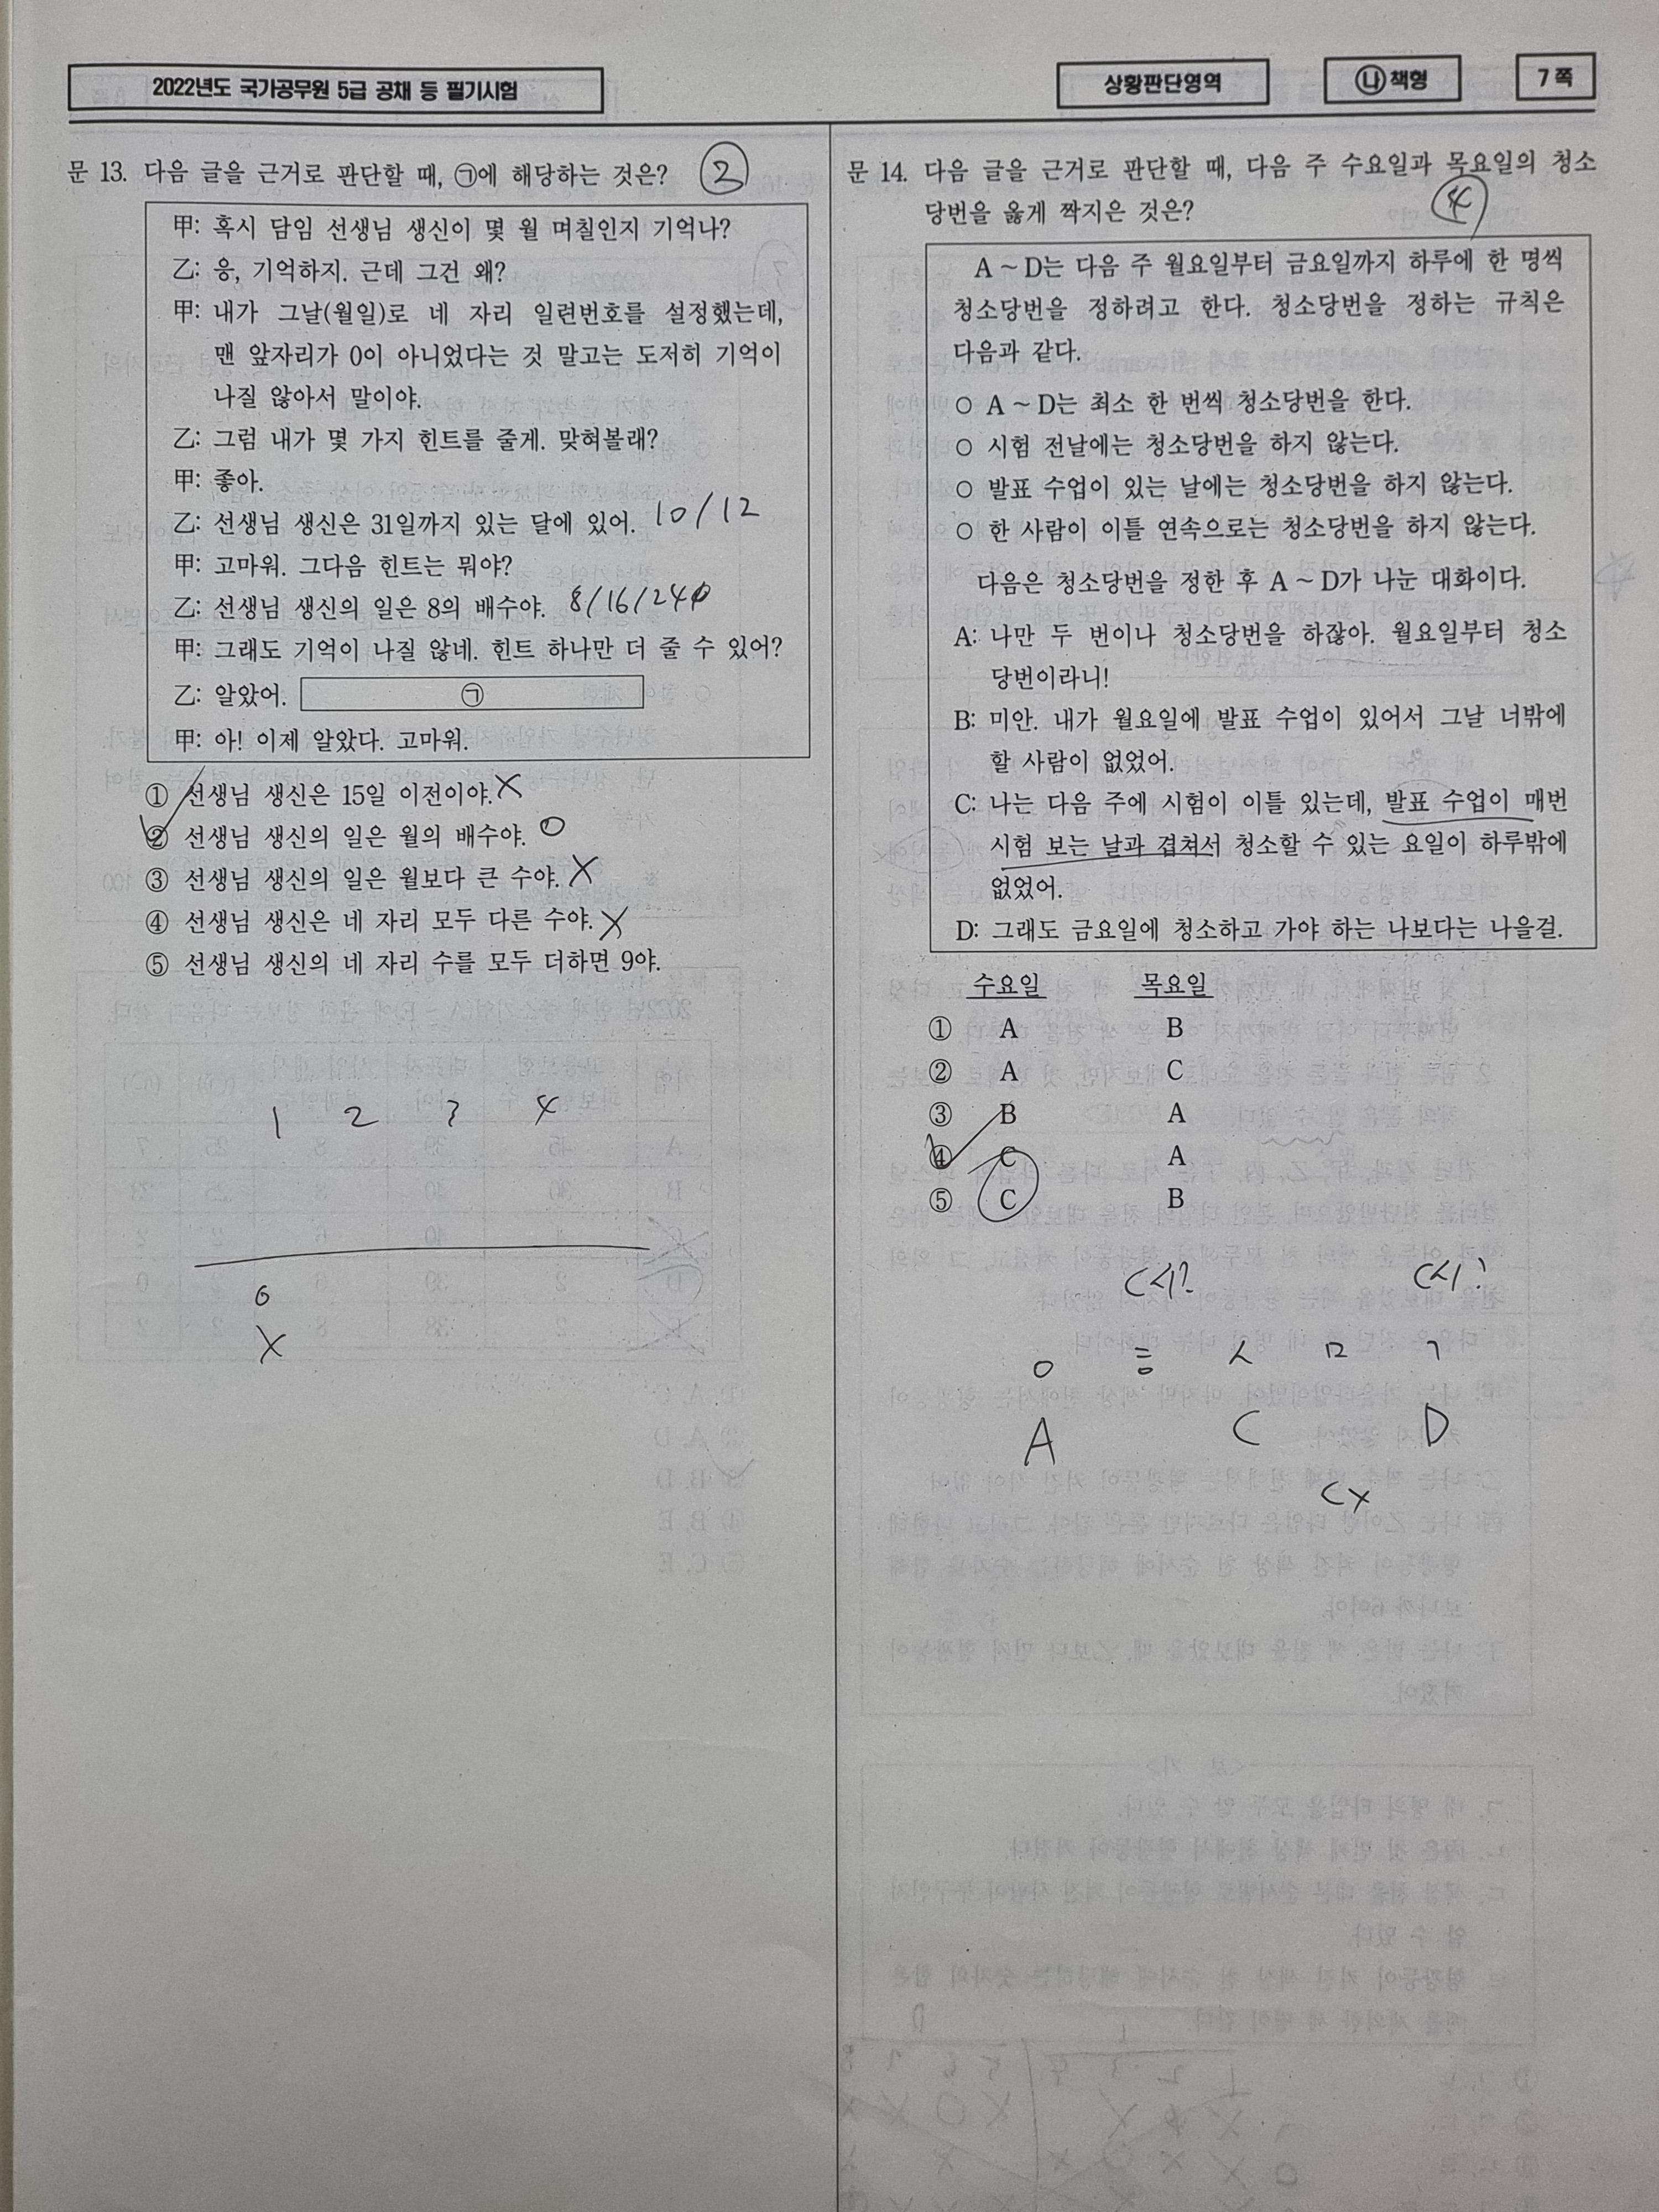 2022년도 국가공무원 5급 공채 등 필기시험
상황판단영역
㉯책형
7 쪽
문 13. 다음 글을 근거로 판단할 때, ㉠에 해당하는 것은?
②
甲: 혹시 담임 선생님 생신이 몇 월 며칠인지 기억나?
乙: 응, 기억하지. 근데 그건 왜?
甲: 내가 그날(월일)로 네 자리 일련번호를 설정했는데,
맨 앞자리가 0이 아니었다는 것 말고는 도저히 기억이
나질 않아서 말이야.
乙: 그럼 내가 몇 가지 힌트를 줄게. 맞혀볼래?
甲: 좋아.
乙: 선생님 생신은 31일까지 있는 달에 있어. 10/12
甲: 고마워. 그다음 힌트는 뭐야?
乙: 선생님 생신의 일은 8의 배수야. 8/16/24
甲: 그래도 기억이 나질 않네. 힌트 하나만 더 줄 수 있어?
乙: 알았어. ㉠
甲: 아! 이제 알았다. 고마워.
① 선생님 생신은 15일 이전이야. X
② 선생님 생신의 일은 월의 배수야. O
③ 선생님 생신의 일은 월보다 큰 수야. X
④ 선생님 생신은 네 자리 모두 다른 수야. X
⑤ 선생님 생신의 네 자리 수를 모두 더하면 9야.
1 2 3 4
o
X
문 14. 다음 글을 근거로 판단할 때, 다음 주 수요일과 목요일의 청소
당번을 옳게 짝지은 것은?
④
A ~ D는 다음 주 월요일부터 금요일까지 하루에 한 명씩
청소당번을 정하려고 한다. 청소당번을 정하는 규칙은
다음과 같다.
○ A ~ D는 최소 한 번씩 청소당번을 한다.
○ 시험 전날에는 청소당번을 하지 않는다.
○ 발표 수업이 있는 날에는 청소당번을 하지 않는다.
○ 한 사람이 이틀 연속으로는 청소당번을 하지 않는다.
다음은 청소당번을 정한 후 A ~ D가 나눈 대화이다.
A: 나만 두 번이나 청소당번을 하잖아. 월요일부터 청소
당번이라니!
B: 미안. 내가 월요일에 발표 수업이 있어서 그날 너밖에
할 사람이 없었어.
C: 나는 다음 주에 시험이 이틀 있는데, 발표 수업이 매번
시험 보는 날과 겹쳐서 청소할 수 있는 요일이 하루밖에
없었어.
D: 그래도 금요일에 청소하고 가야 하는 나보다는 나을걸.
수요일 목요일
① A B
② A C
③ B A
④ C A
⑤ C B
C시? C시?
ㅇ ㅎ ㅅ ㅁ ㄱ
A C D
CX